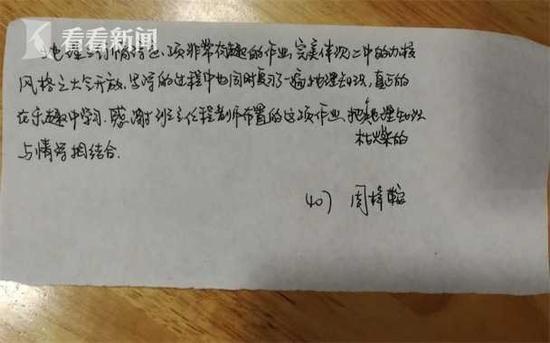 看看新闻
KNEWS
地理三行情诗是一项非常有趣的作业,完美体现二中的办校
风格之大气开放.书写的过程中也同时复习了一遍地理知识,真正的
在乐趣中学习.感谢班主任程老师布置的这项作业,把地理知识
枯燥的
与情诗相结合.
407 周